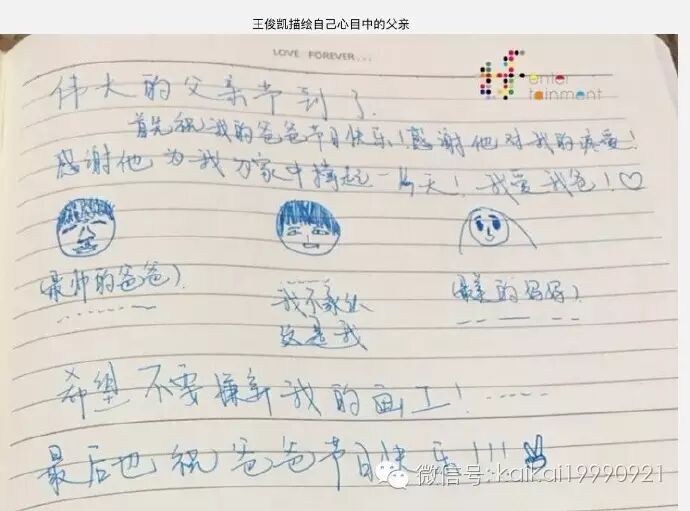 王俊凯描绘自己心目中的父亲
LOVE FOREVER...
enter
tainment
伟大的父亲节到了.
首先祝我的爸爸节日快乐!感谢他对我的疼爱!
感谢他为我为家中撑起一片天!我爱我爸!♡
(最帅的爸爸).
(最美的妈妈).
这是我
希望不要嫌弃我的画工!-----
最后也祝爸爸节日快乐!!!
微信号:kaikai19990921